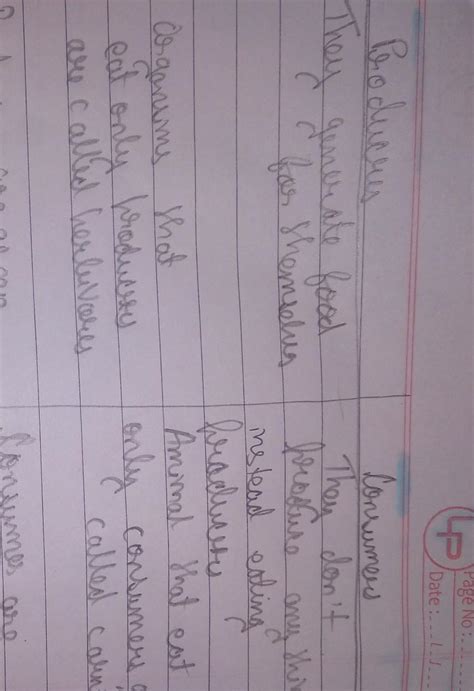 Page No:
Date:
Producers
They generate food
for themselves
organisms that
eat only producers
are called herbivores
Consumers
They don't
produce any thin
instead eating
producers
Animal that eat
only consumers
called carn
Consumes are